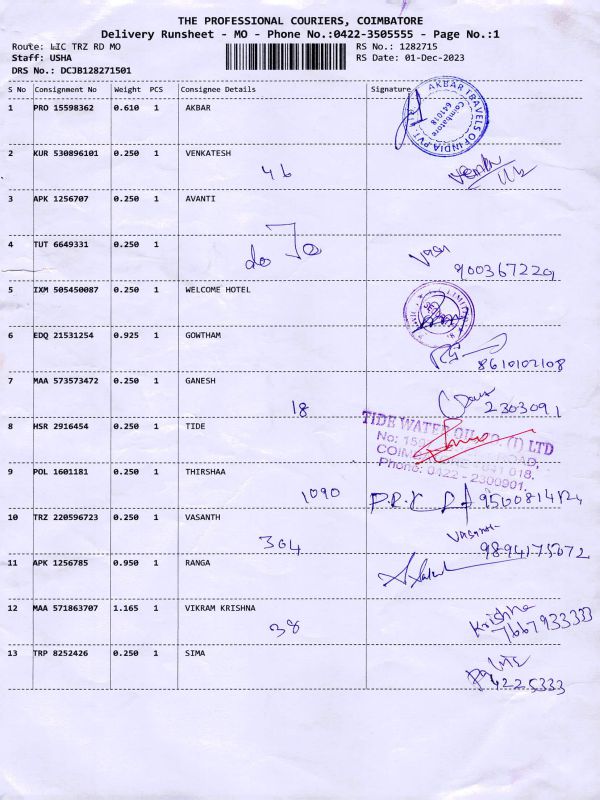 THE PROFESSIONAL COURIERS, COIMBATORE
Delivery Runsheet - MO - Phone No.:0422-3505555 - Page No.:1
Route: LIC TRZ RD MO RS No.: 1282715
Staff: USHA RS Date: 01-Dec-2023
DRS No.: DCJB128271501
S No Consignment No Weight PCS Consignee Details Signature
1 PRO 15598362 0.610 1 AKBAR
AKBAR TRAVELS OF INDIA PVT.
Coimbatore
641018
2 KUR 530896101 0.250 1 VENKATESH
46
3 APK 1256707 0.250 1 AVANTI
4 TUT 6649331 0.250 1
do
9003672229
5 IXM 505450087 0.250 1 WELCOME HOTEL
6 EDQ 21531254 0.925 1 GOWTHAM
8610102108
7 MAA 573573472 0.250 1 GANESH
18 2303091
8 HSR 2916454 0.250 1 TIDE
TIDE WATER OIL CO (I) LTD
ROAD,
COIMBATORE - 641 018.
Phone: 0422 - 2300901.
9 POL 1601181 0.250 1 THIRSHAA
1090 P.R.K
10 TRZ 220596723 0.250 1 VASANTH
304 9894175672
11 APK 1256785 0.950 1 RANGA
12 MAA 571863707 1.165 1 VIKRAM KRISHNA
38 Krishna
7667933333
13 TRP 8252426 0.250 1 SIMA
4225333